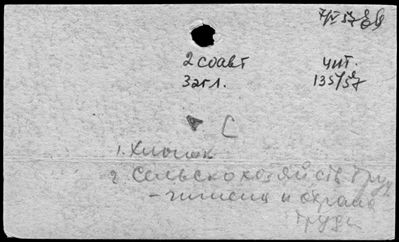 2 соавт чит.
32л. 135/57
С
1. Хлопок
2. Сельскохозяйств. труд
- гигиена и охрана
труда